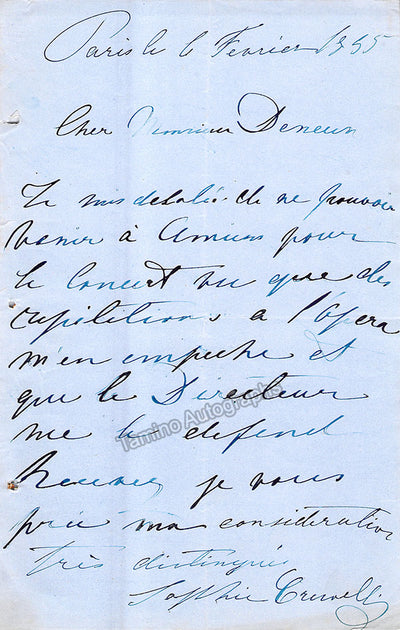 Paris le 6 Fevrier 1855
Cher Monsieur Deneux
Je suis désolée de ne pouvoir
venir à Amiens pour
le Concert vu que des
repetitions a l'Opera
m'en empeche et
que le Directeur
me le defend
Tamino Autographs
Recevez je vous
prie ma consideration
très distinguée
Sophie Cruvelli